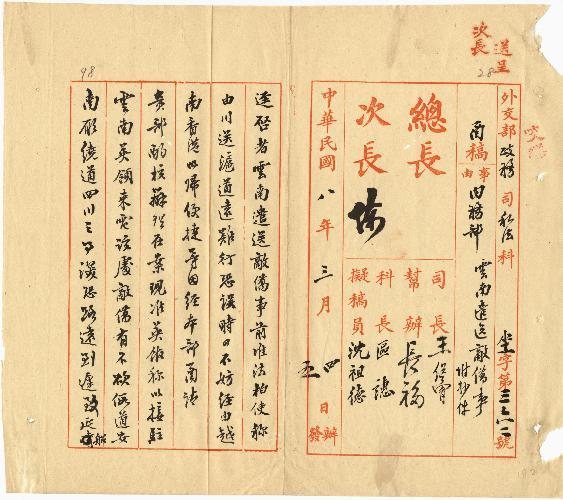 送呈
次長
28
外交部政務司私法科
坐字第三六二號
函稿
事由
內務部
雲南遣送敵僑事
附抄件
總長
次長
司長
幫辦 長福
科長 區
擬稿員 沈祖德
中華民國八年三月
四日辦
五日發
98
逕啓者雲南遣送敵僑事前准法柏使稱
由川送滬道遠難行恐誤時日不妨經由越
南香港以歸便捷等因經本部函請
貴部酌核辦理在案現准英館稱以接駐
雲南英領來電該處敵僑有不欲假道安
南願繞道四川之事深恐路遠到遲致延
192